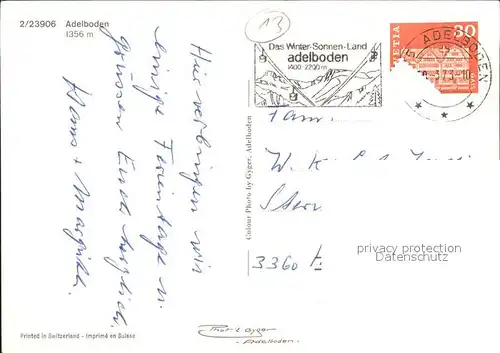 2/23906 Adelboden
1356 m
13
Das Winter-Sonnen-Land
adelboden
1400-2200 m
HELVETIA
30
ADELBODEN
Hier verbringen wir
einige Ferientage u.
grüssen Euch herzlich.
Hans + Margrith.
Colour Photo by Gyger, Adelboden
Fam.
W. K
Stern
3360
privacy protection
Datenschutz
Printed in Switzerland - Imprimé en Suisse
Gyger
- Adelboden -